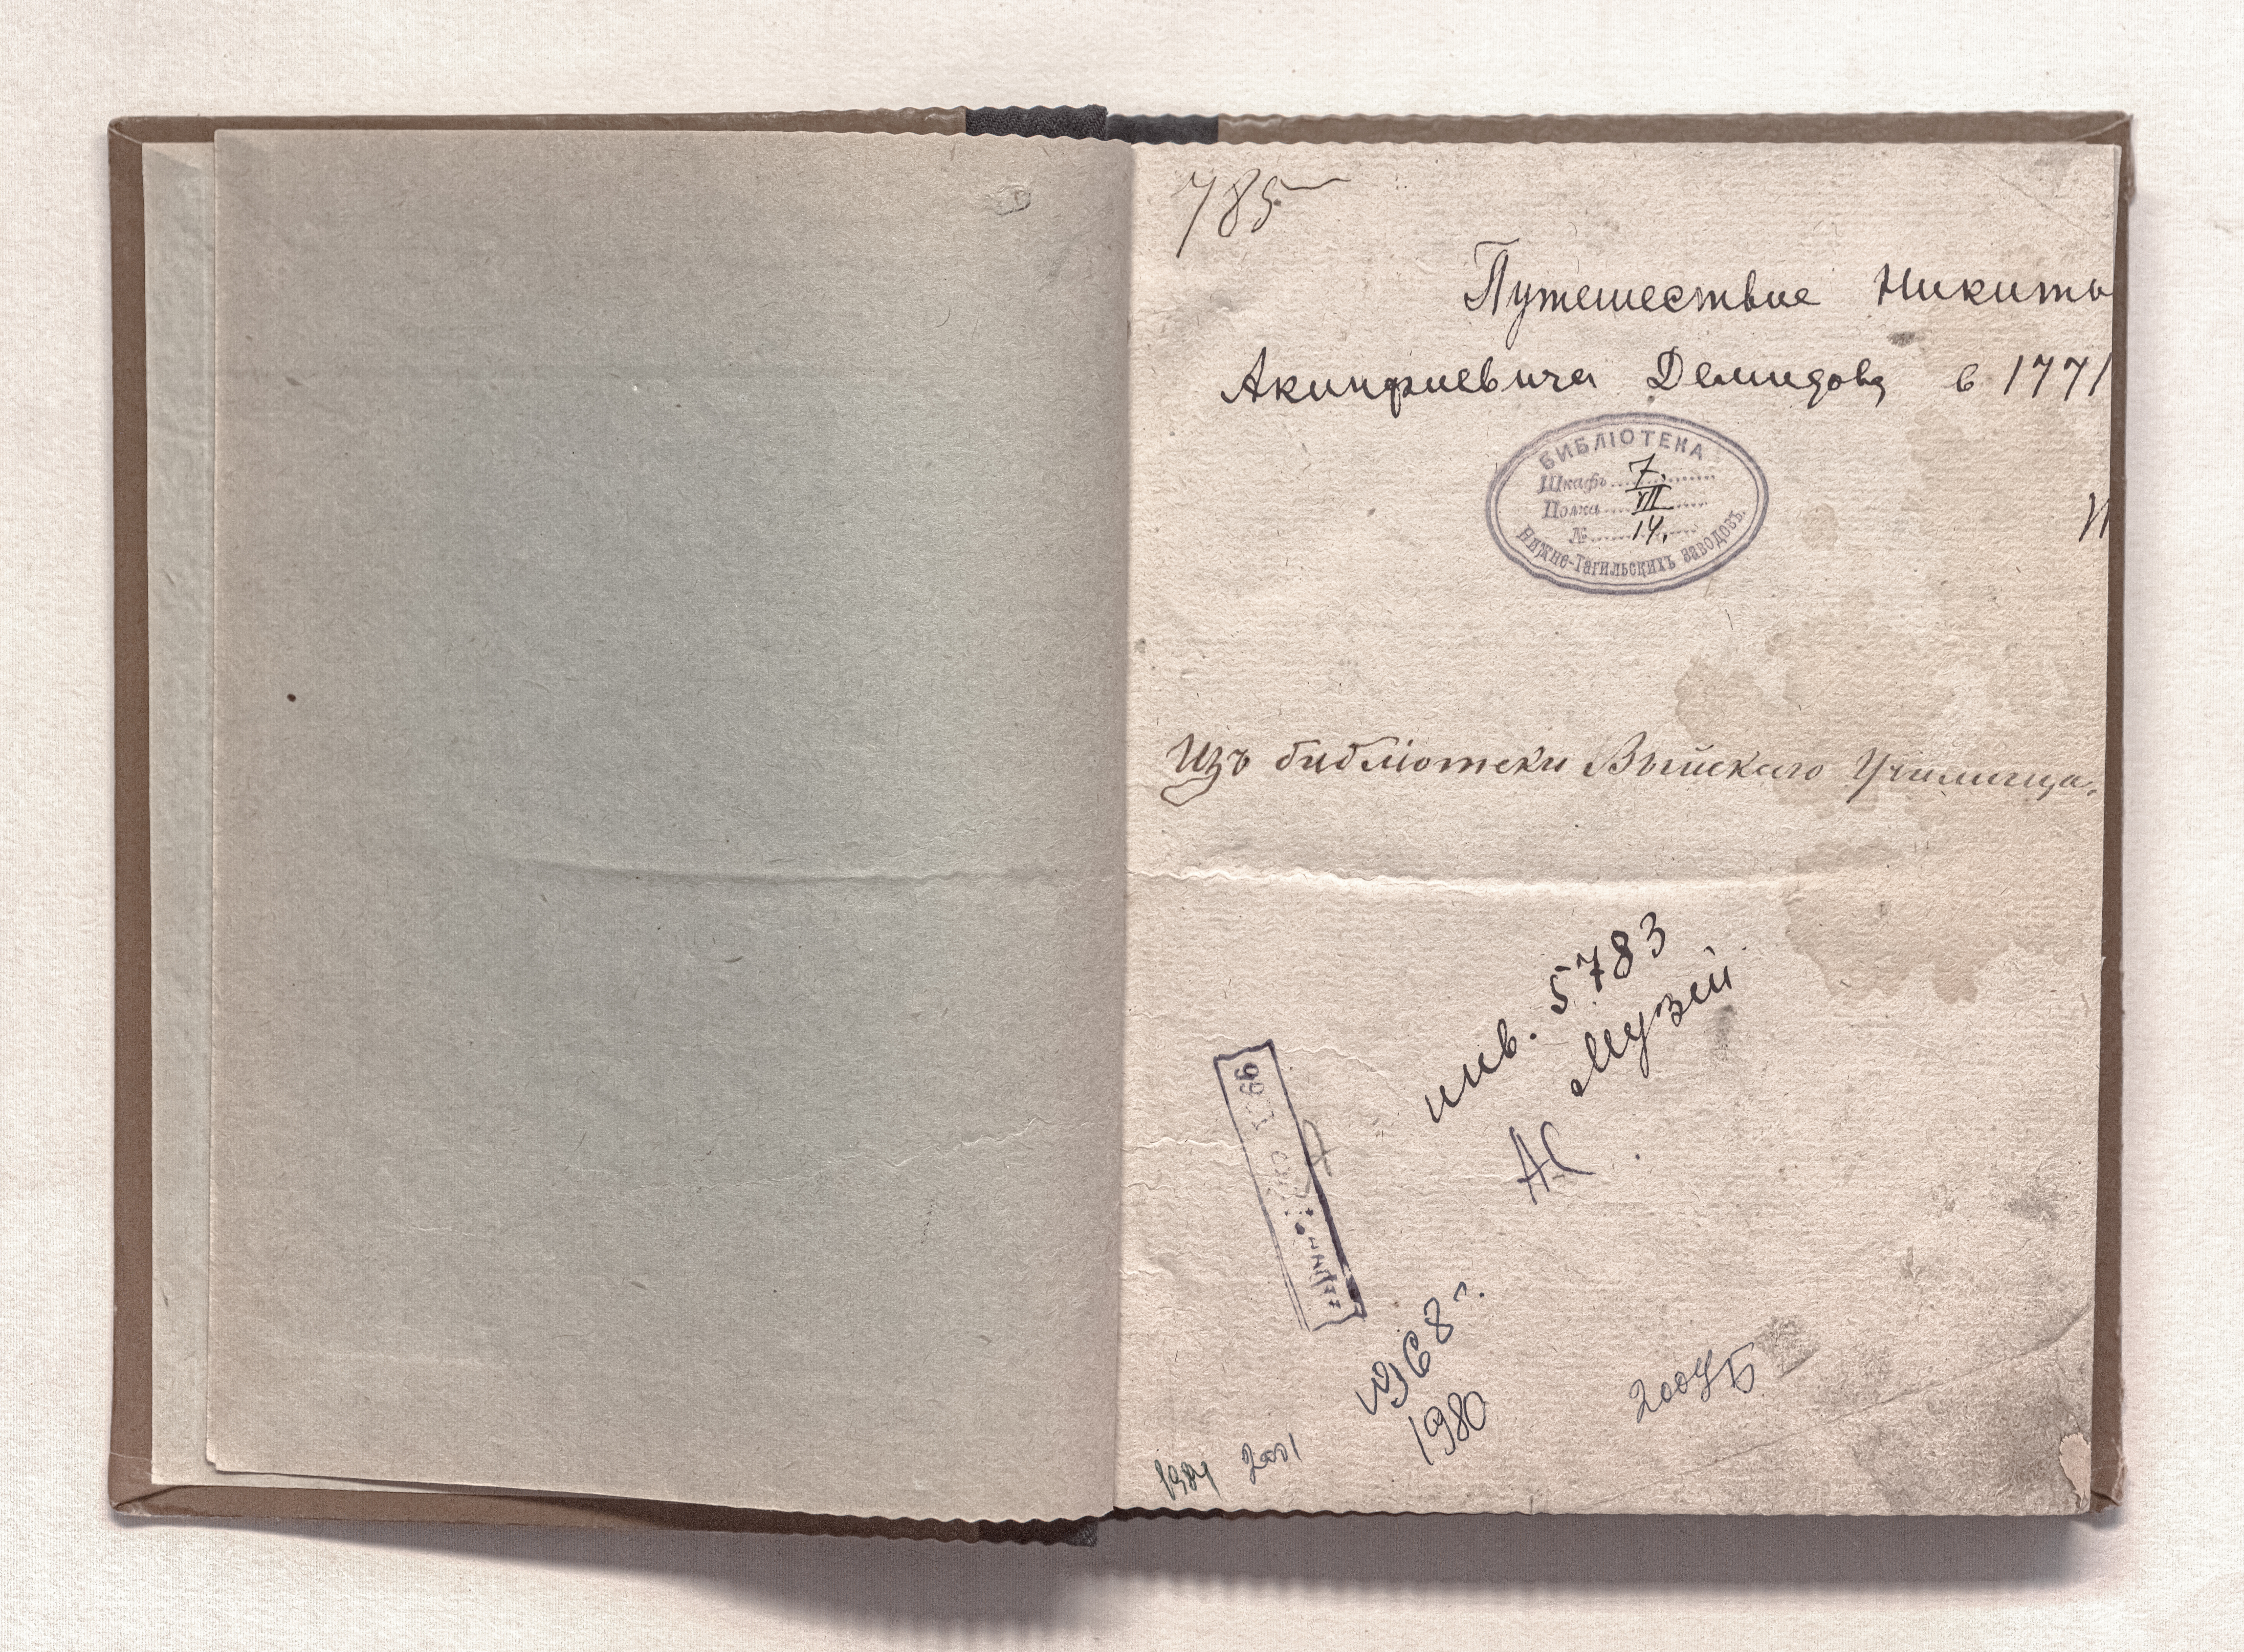 785
Путешествие Никиты
Акинфиевича Демидова в 1771
БИБЛІОТЕКА
Шкафъ 7.
Полка VII
№ 14.
НИЖНЕ-ТАГИЛЬСКИХЪ ЗАВОДОВЪ.
И
Изъ библіотеки Выйскаго Училища.
инв. 5783
Музей
АС
66
1968 г.
1980
2004 Б
1984 2001